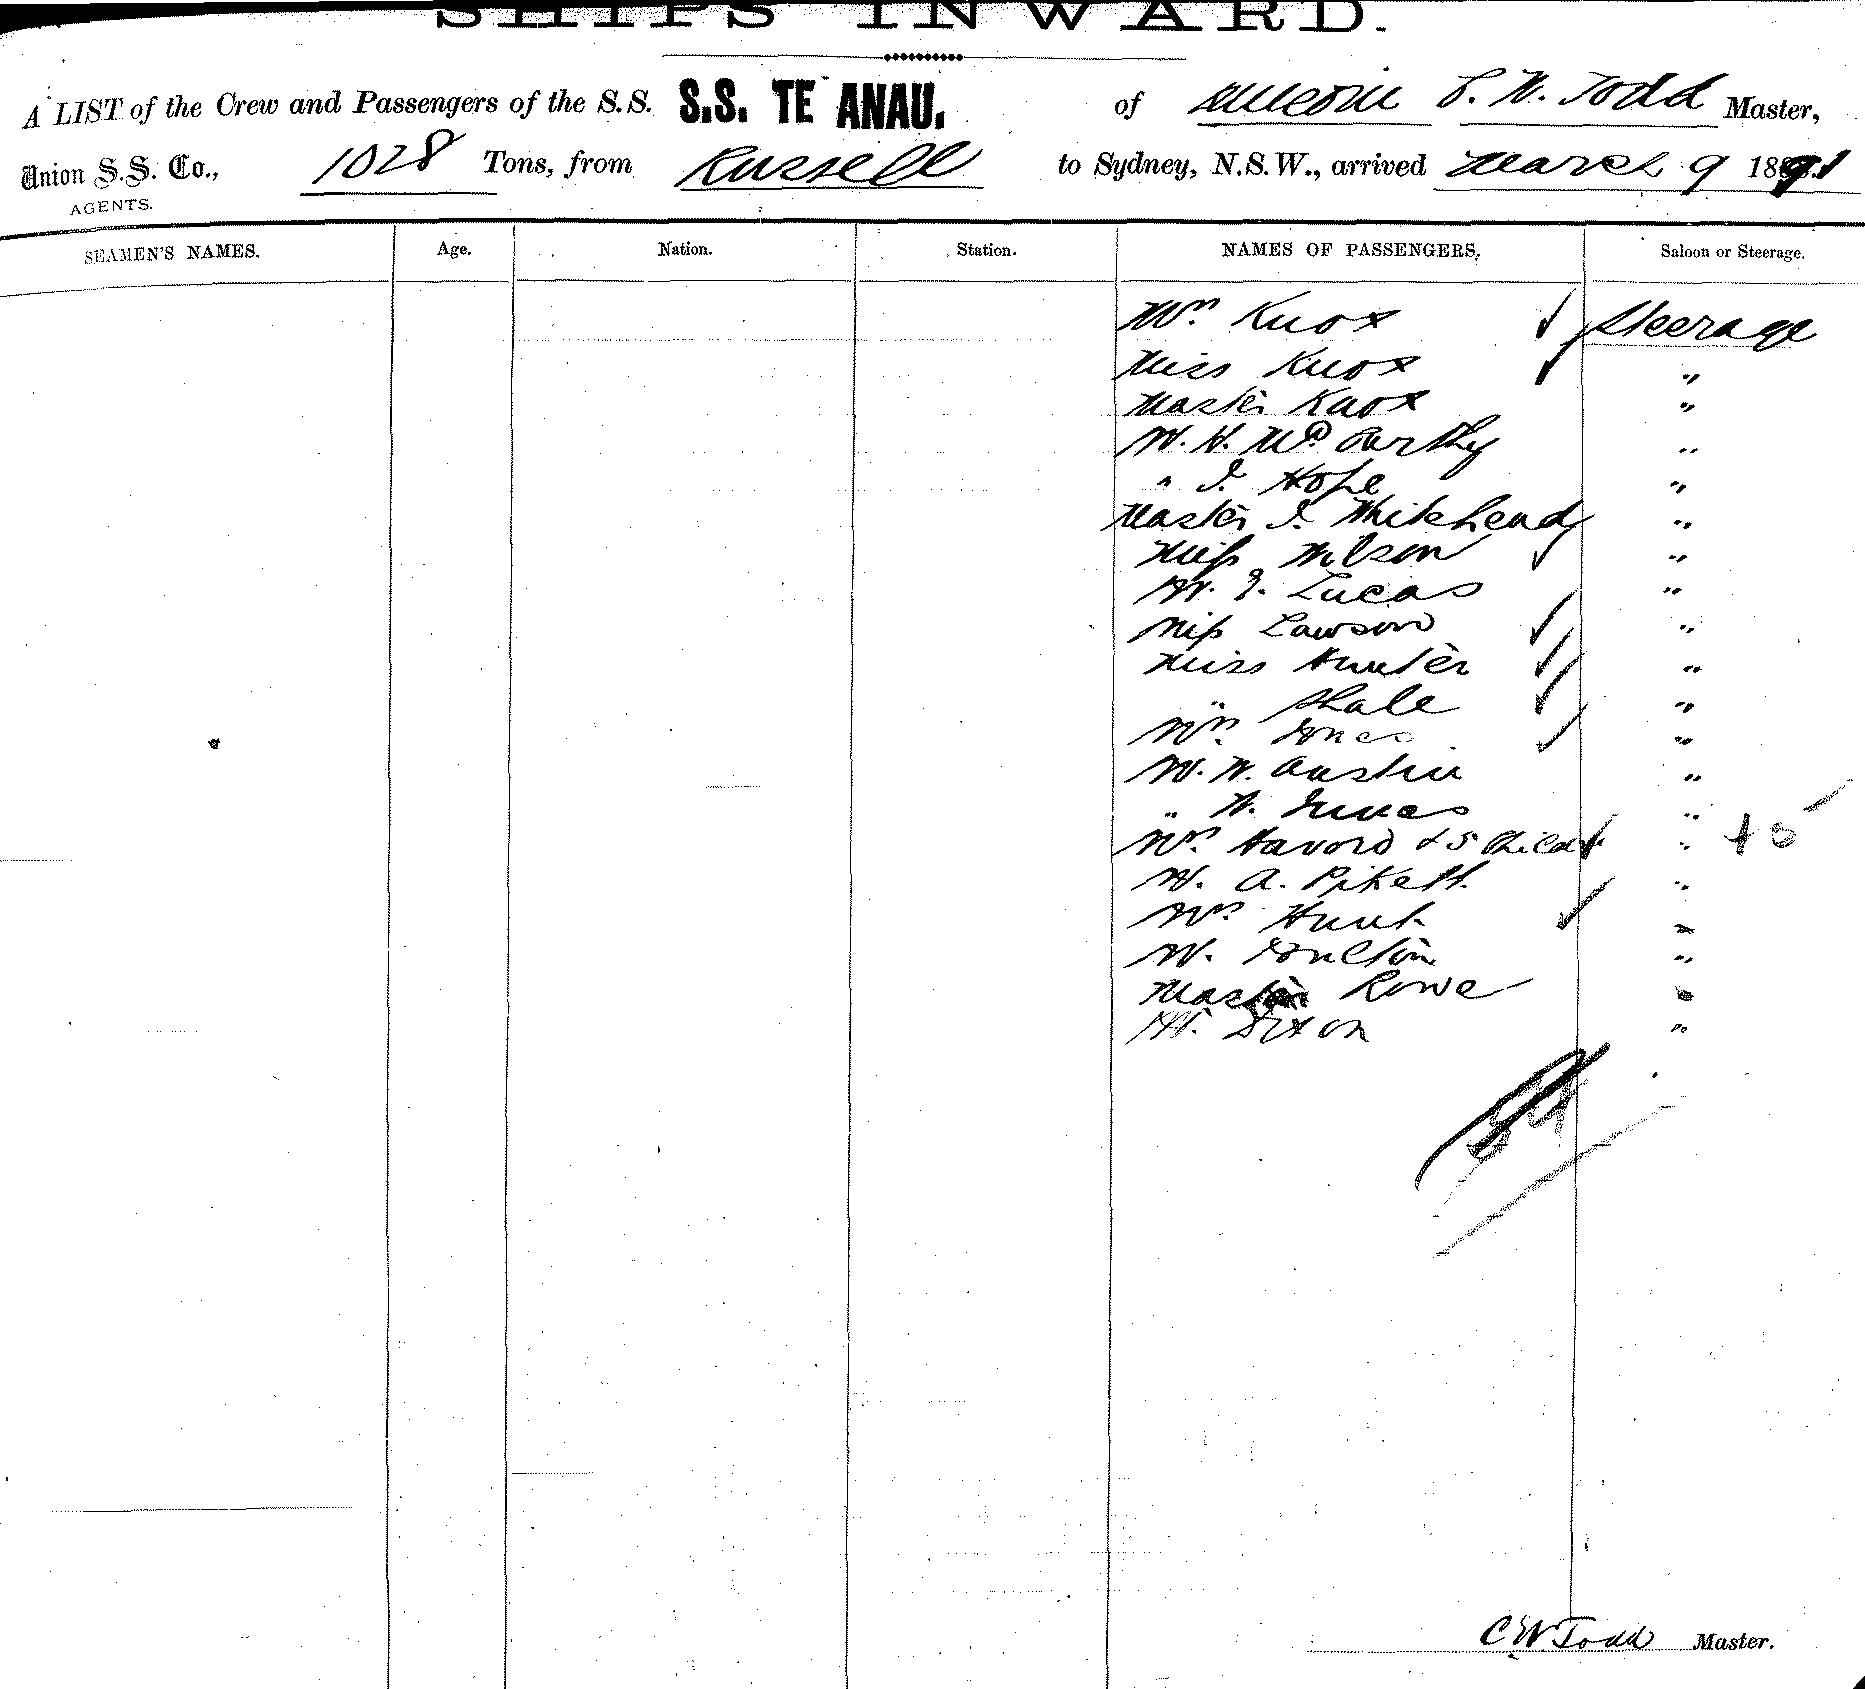 SHIPS INWARD.
A LIST of the Crew and Passengers of the S.S. S.S. TE ANAU. of Dunedin C. W. Todd Master,
Union S.S. Co., 1028 Tons, from Russell to Sydney, N.S.W., arrived March 9 1891
AGENTS.
SEAMEN'S NAMES. Age. Nation. Station. NAMES OF PASSENGERS. Saloon or Steerage.
Mrs. Knox Steerage
Miss Knox "
Master Knox "
M. H. McCarthy "
" J. Hope "
Master J. Whitehead "
Miss Wilson "
Mr. J. Lucas "
Miss Lawson "
Miss Hunter "
" Shale "
Mrs. Jones "
Mr. W. Austin "
" W. "
Mrs. Havord & 5 Child " + 5
Mr. A. Pikett "
Mrs. Hunt "
Mr. "
Master Rowe "
Mr. Dixon "
C W Todd Master.